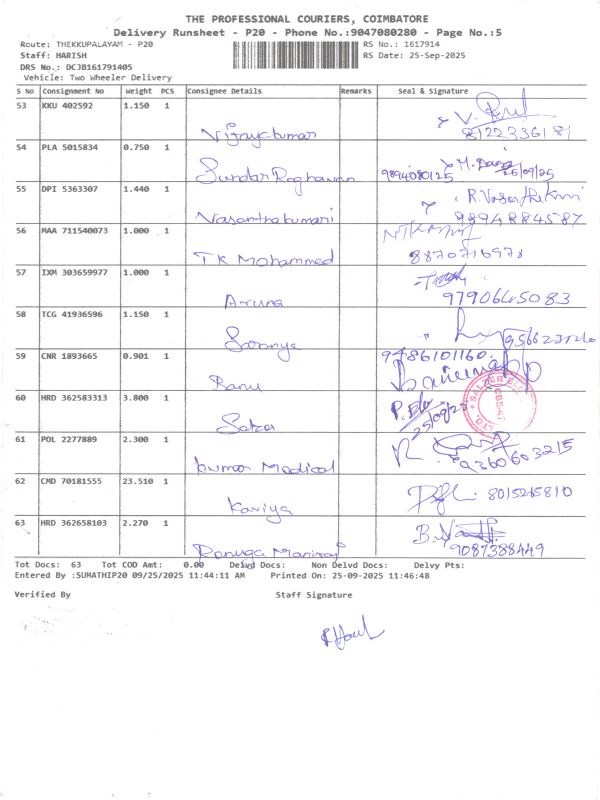 THE PROFESSIONAL COURIERS, COIMBATORE
Delivery Runsheet - P20 - Phone No.:9047080280 - Page No.:5
Route: THEKKUPALAYAM - P20 RS No.: 1617914
Staff: HARISH RS Date: 25-Sep-2025
DRS No.: DCJB161791405
Vehicle: Two Wheeler Delivery
S No Consignment No Weight PCS Consignee Details Remarks Seal & Signature
53 KKU 402592 1.150 1
Vijayakumar 8122336181
54 PLA 5015834 0.750 1
Sundar Raghavan 9894080125 25/09/25
55 DPI 5363307 1.440 1
Vasanthakumari 9894884587
56 MAA 711540073 1.000 1
TK Mohammed 8870716978
57 IXM 303659977 1.000 1
Aruna 9790645083
58 TCG 41936596 1.150 1
Saranya
59 CNR 1893665 0.901 1 9486101160
Ranu
60 HRD 362583313 3.800 1
25/09/25
61 POL 2277889 2.300 1
kumar Madical 9360603215
62 CMD 70181555 23.510 1
Kaviya 8015245810
63 HRD 362658103 2.270 1
Ranuga Maniraj 9087388449
Tot Docs: 63 Tot COD Amt: 0.00 Delvd Docs: Non Delvd Docs: Delvy Pts:
Entered By :SUMATHIP20 09/25/2025 11:44:11 AM Printed On: 25-09-2025 11:46:48
Verified By Staff Signature